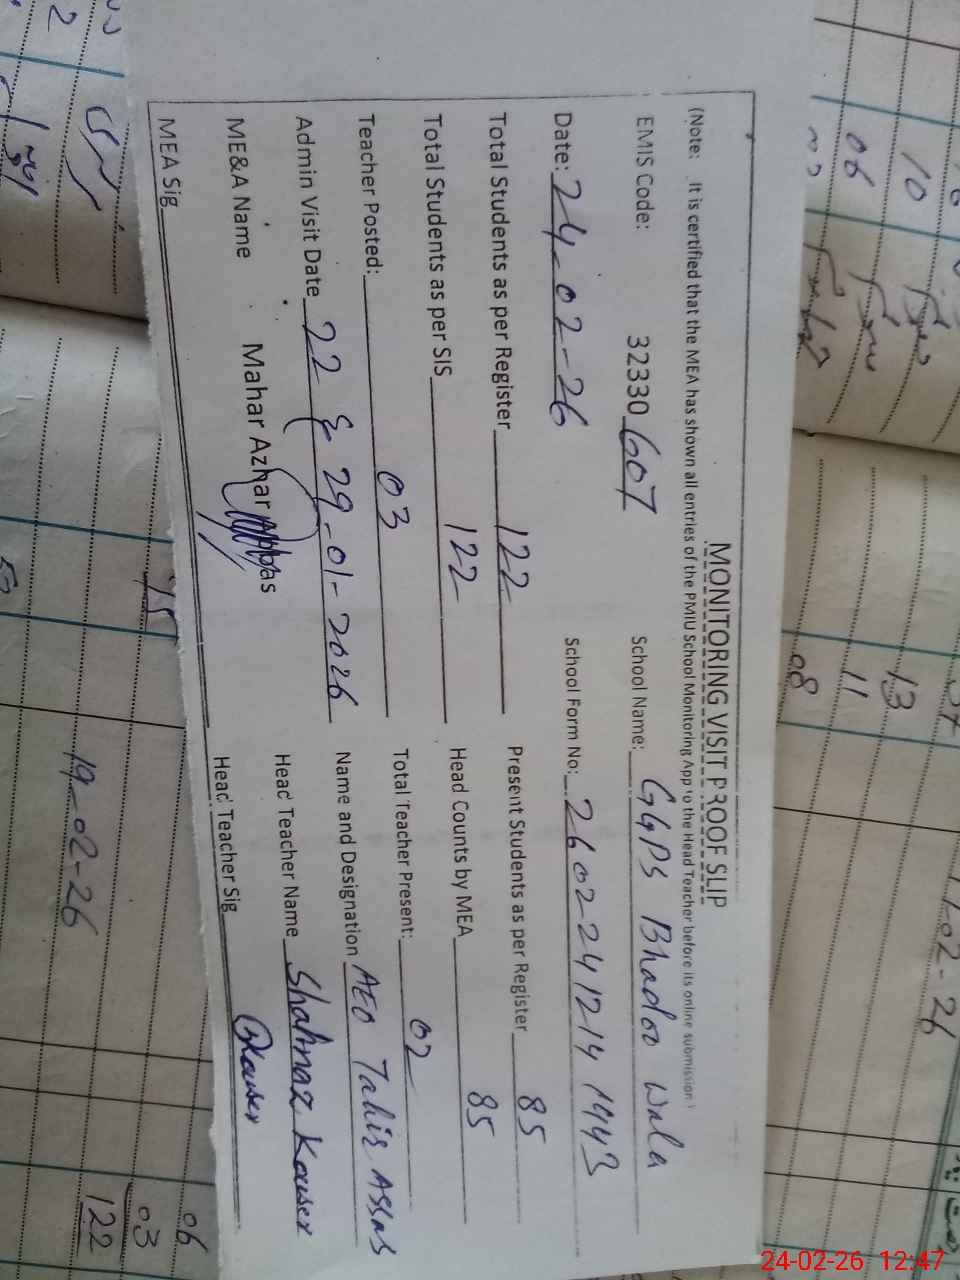 MONITORING VISIT PROOF SLIP
(Note: It is certified that the MEA has shown all entries of the PMIU School Monitoring App to the Head Teacher before its online submission)
EMIS Code: 32330 607 School Name: GGPS Bhadoo Wala
Date: 24-02-26 School Form No: 2602241214 1443
Total Students as per Register 122 Present Students as per Register 85
Total Students as per SIS 122 Head Counts by MEA 85
Teacher Posted: 03 Total Teacher Present: 02
Admin Visit Date 22 & 29-01-2026 Name and Designation AEO Tahir Assas
ME&A Name Mahar Azhar Abbas Head Teacher Name Shahnaz Kouser
MEA Sig Head Teacher Sig Kouser
10
06
13
11
08
19-02-26
06
03
122
24-02-26 12:47